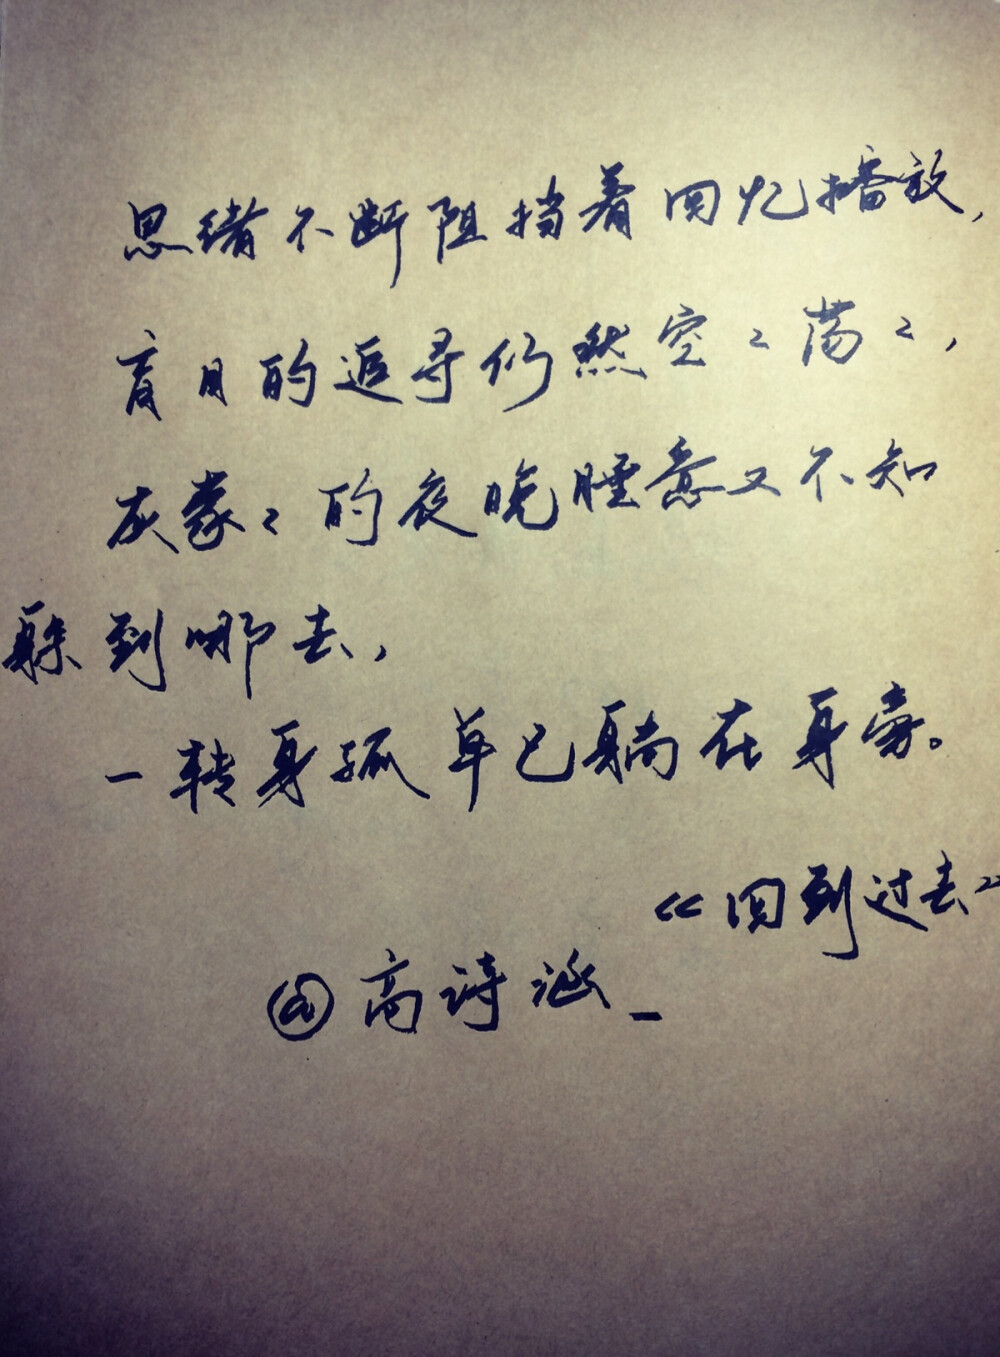 思绪不断阻挡着回忆播放,
盲目的追寻仍然空々荡々,
灰蒙々的夜晚睡意又不知
躲到哪去,
一转身孤单已躺在身旁。
《回到过去》
@高诗涵_